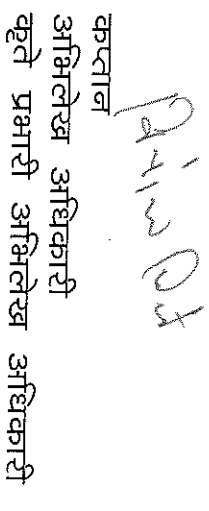 कप्तान
अभिलेख अधिकारी
कृते प्रभारी अभिलेख अधिकारी